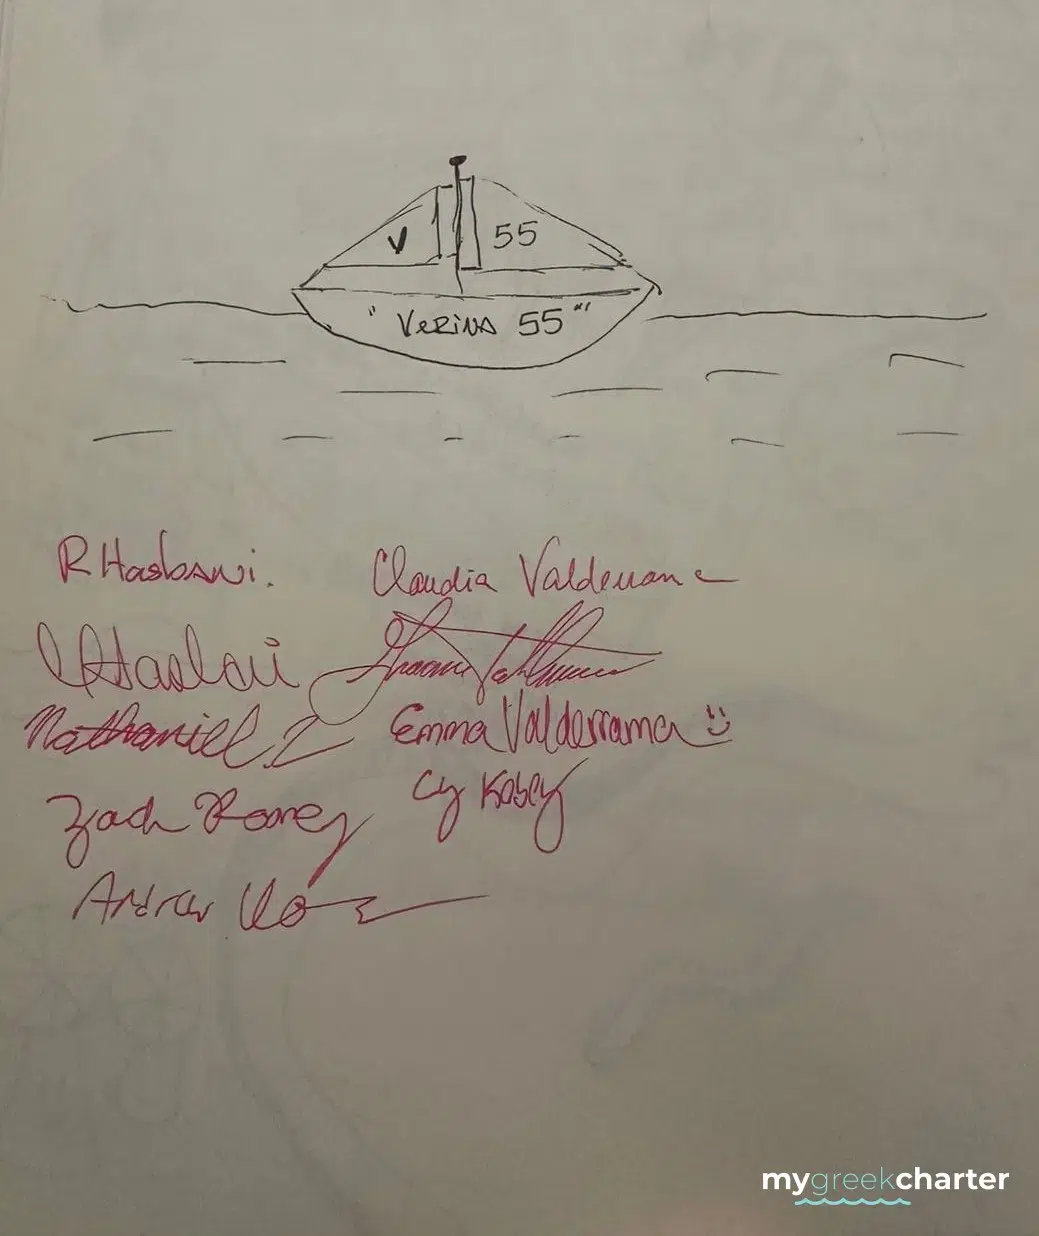 V 55
" VERINA 55 "
R Hasbani.
Claudia Valderrama
Nathaniel
Emma Valderrama
Zach Rooney
Cy Kobey
Andrew
mygreekcharter